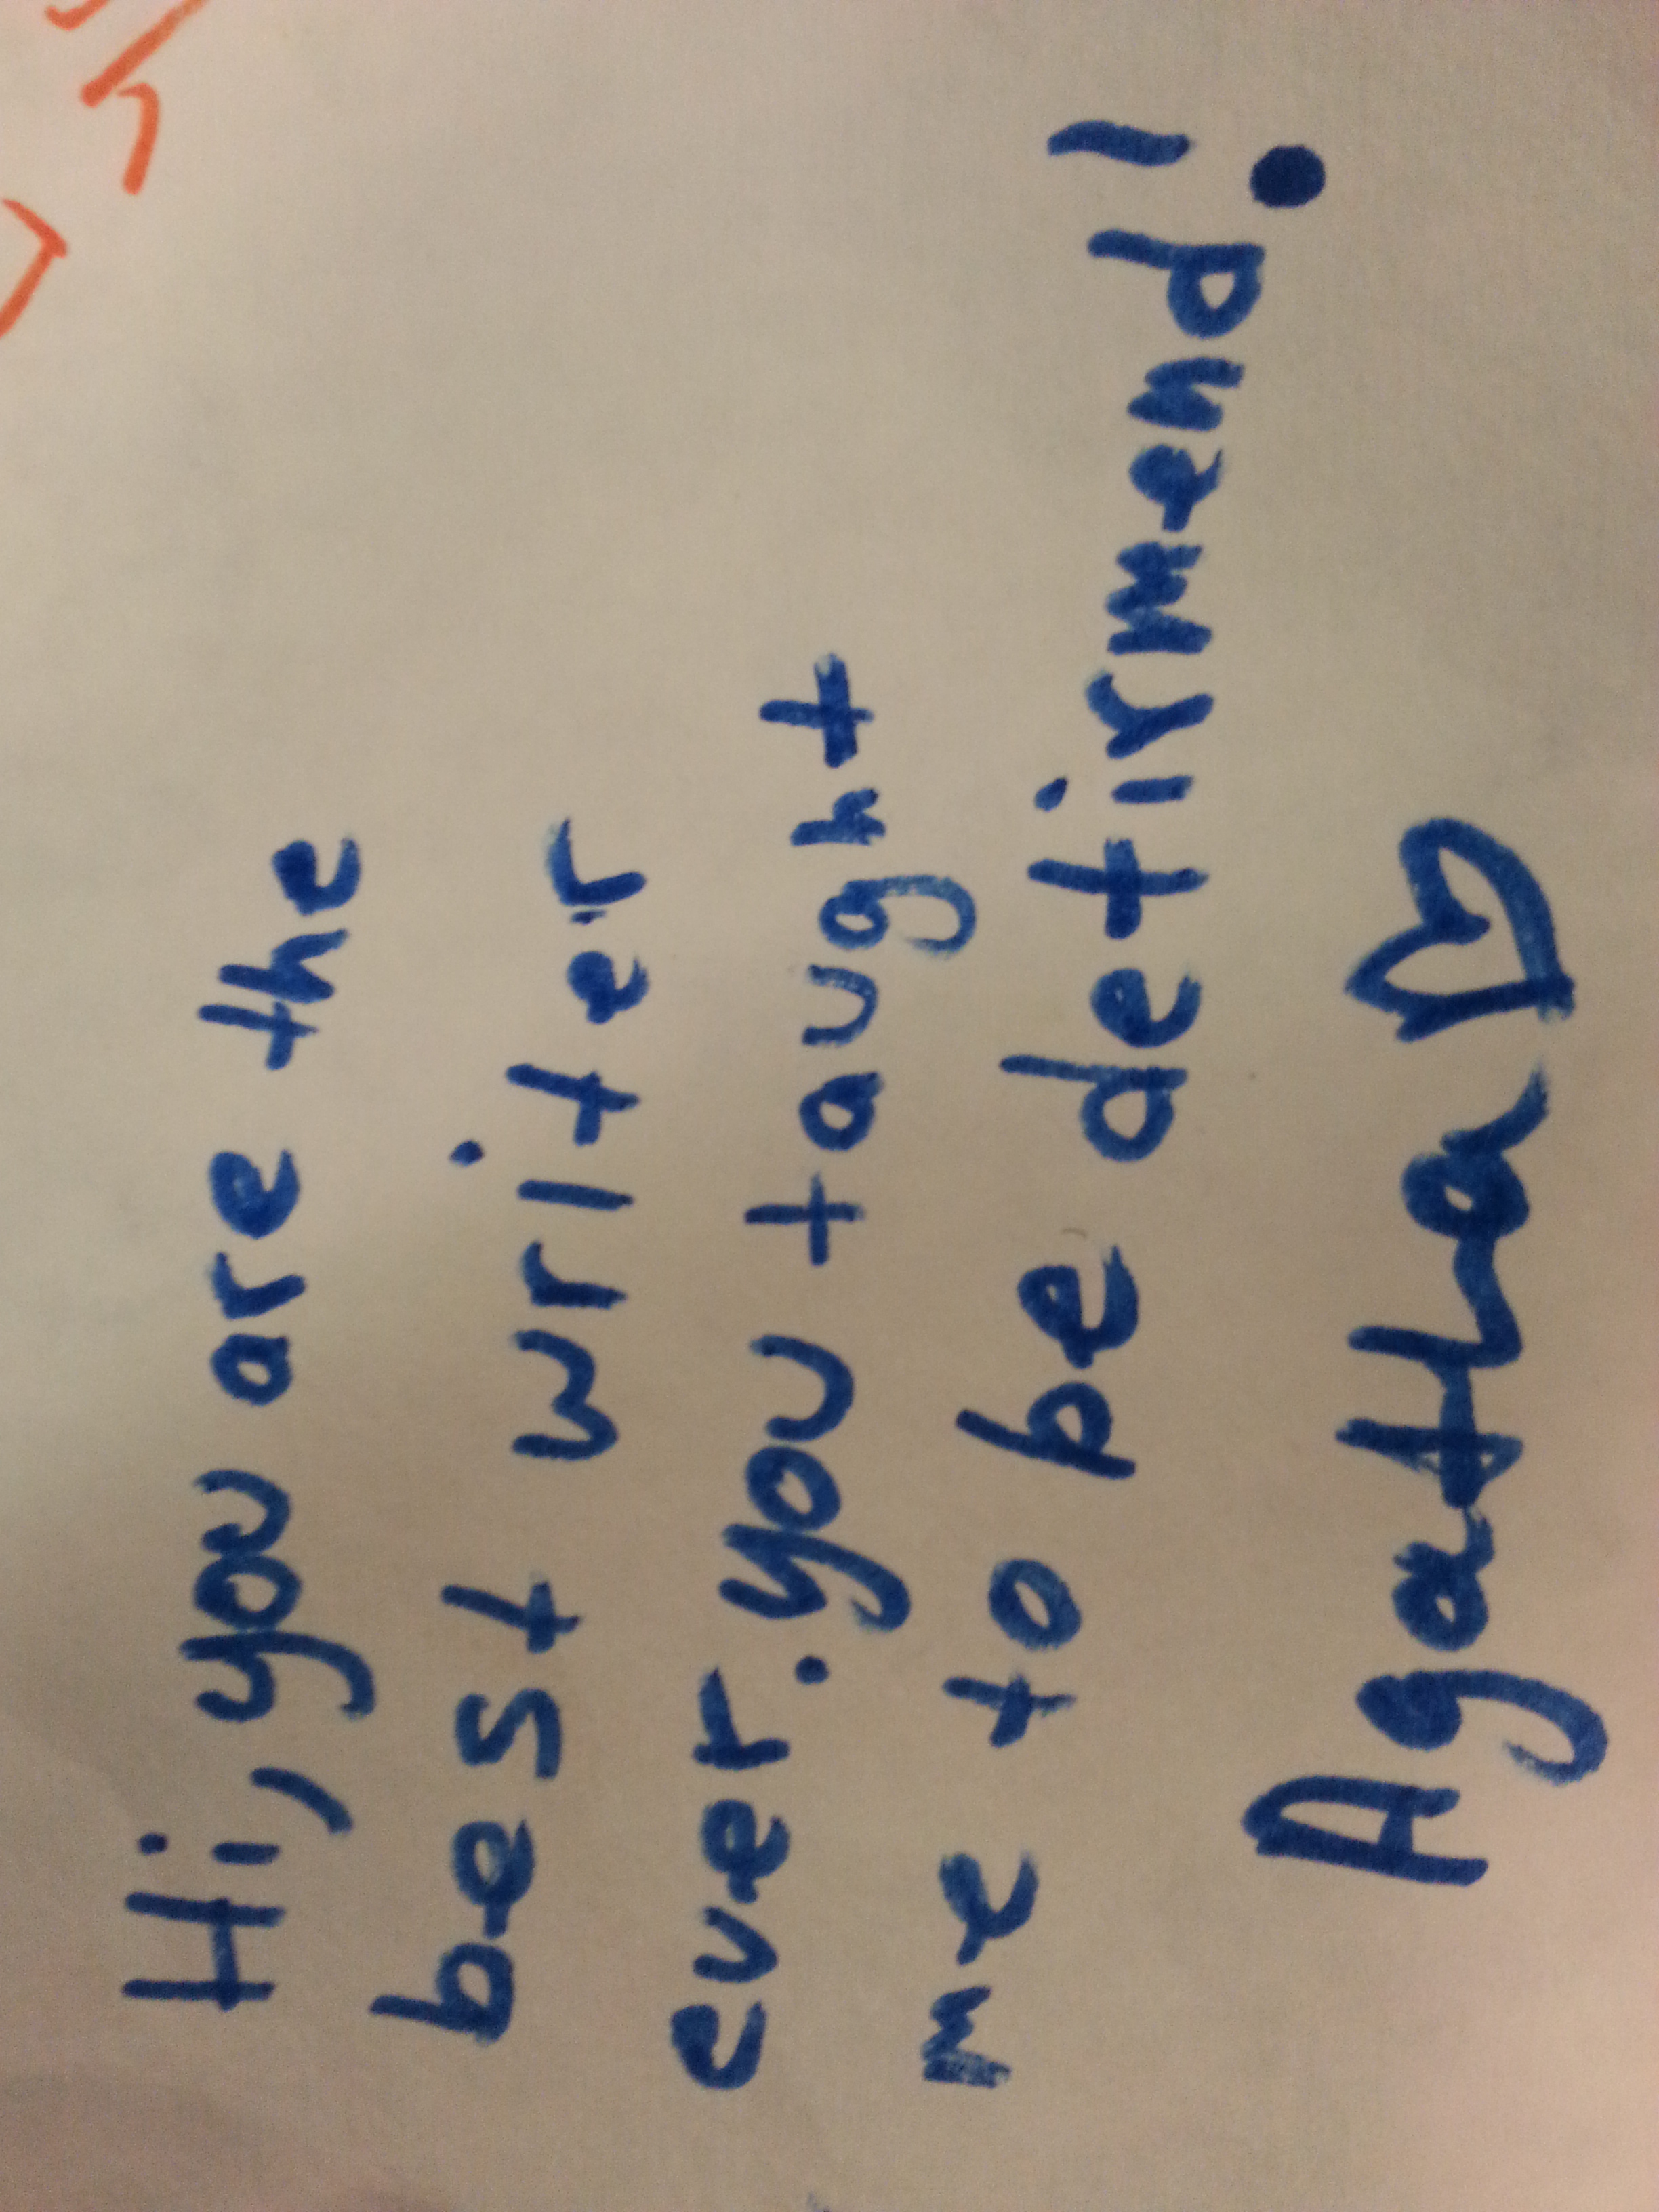 Hi, you are the
best writer
ever. you taught
me to be detirmend!
Agatha